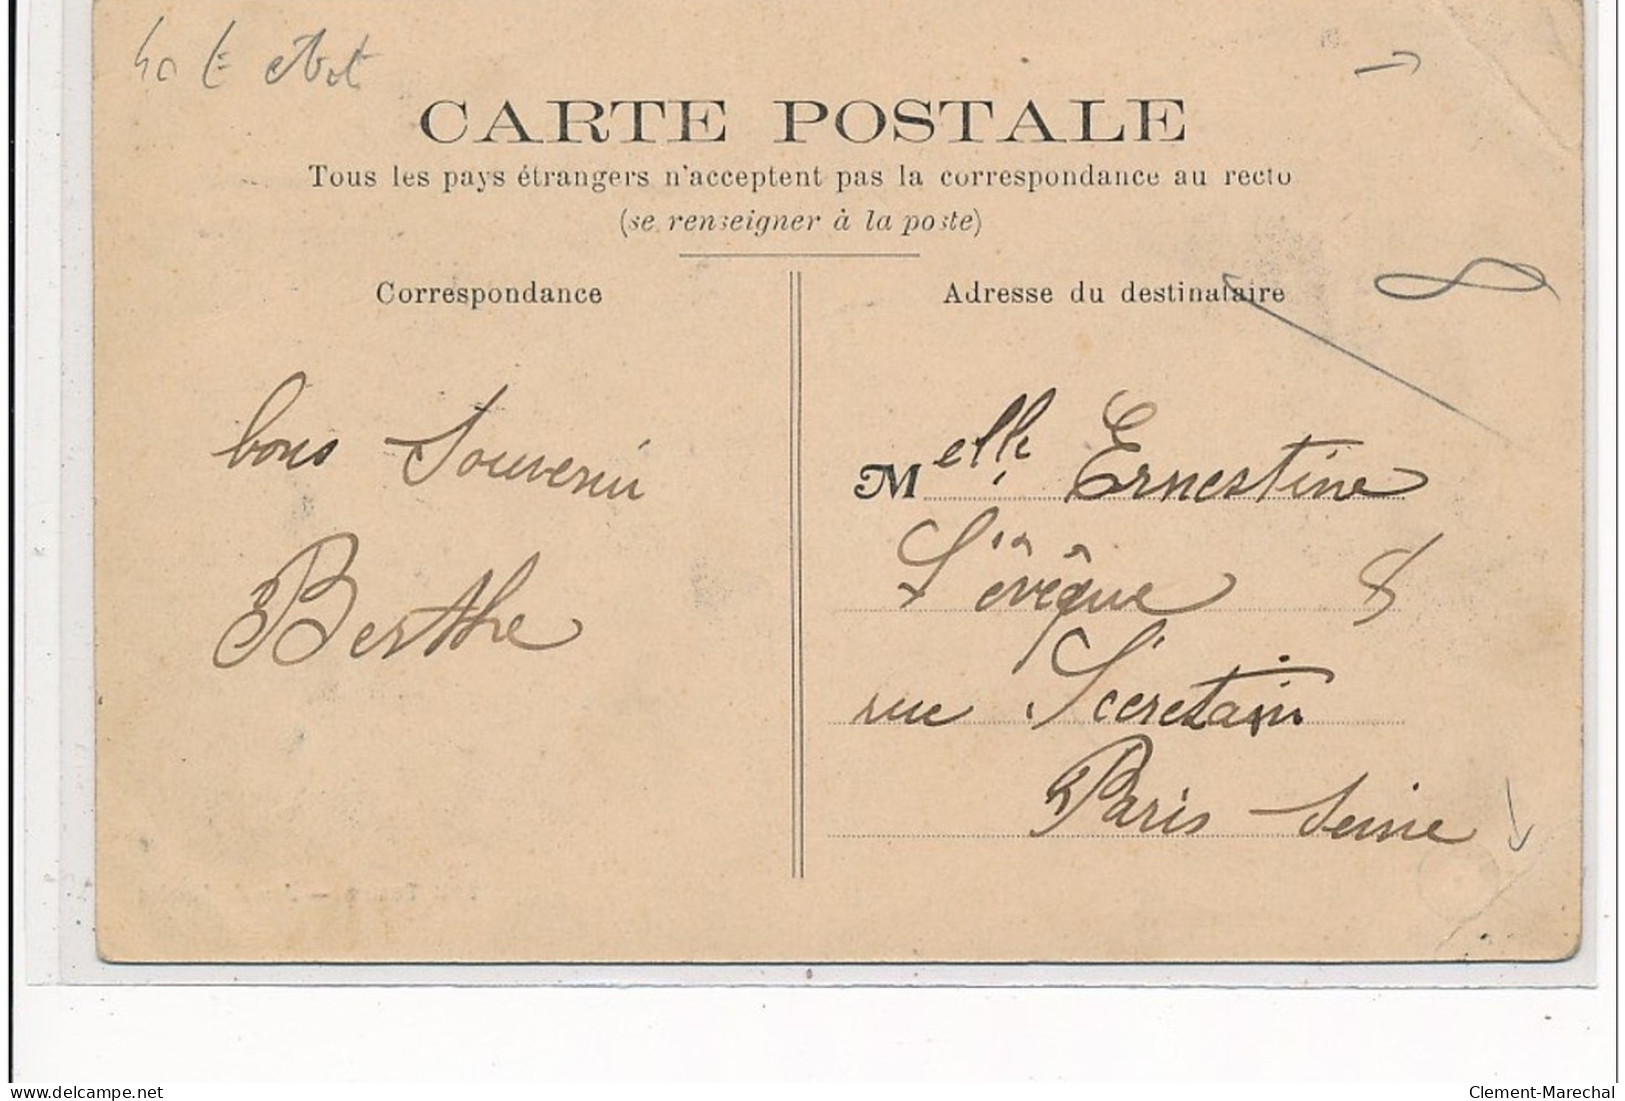 40 E
CARTE POSTALE
Tous les pays étrangers n'acceptent pas la correspondance au recto
(se renseigner à la poste)
Correspondance
Adresse du destinataire
bons Souvenir
Berthe
Melle Ernestine
L'évêque 8
rue Secretain
Paris Seine
delcampe.net
Clement-Marechal